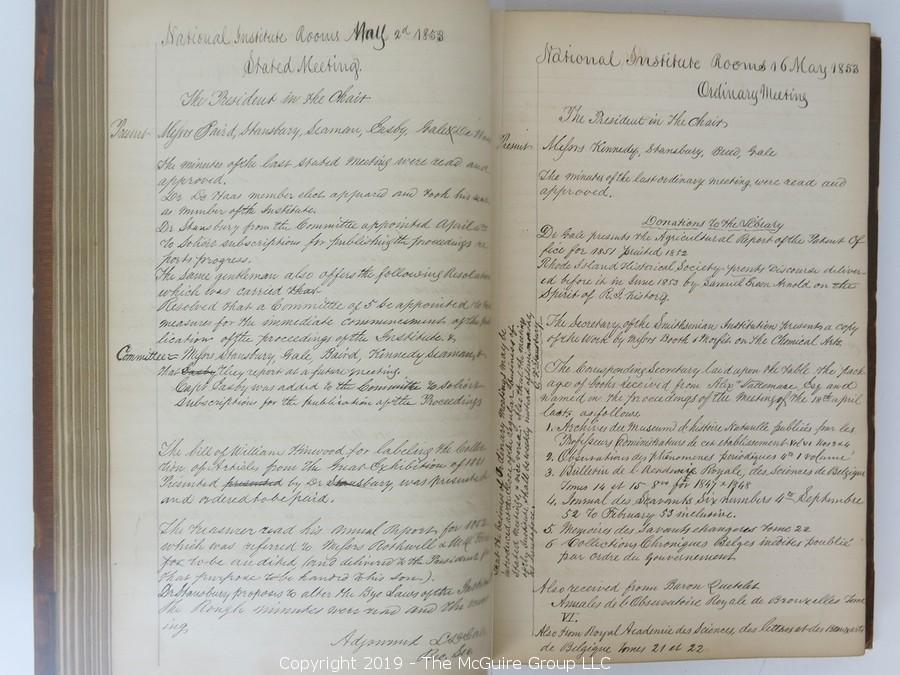 National Institute Rooms May 2d 1853
Stated Meeting.
The President in the Chair
Present Messrs Baird, Stansbury, Seaman, Easby, Gale
The minutes of the last Stated Meeting were read and
approved.
Dr De Haas member elect appeared and took his
as member of the Institute.
Dr Stansbury from the Committee appointed April
to solicit subscription for publishing the proceedings re
ports progress.
The same gentleman also offers the following Resolution
which was carried that
Resolved that a Committee of 5 be appointed to
measures for the immediate commencement of the pub
lication of the proceedings of the Institute.
Committee = Messrs Stansbury, Gale, Baird, Kennedy Seaman,
that they report at a future meeting.
Capt Easby was added to the Committee to solicit
subscriptions for the publication of the Proceedings
The bill of William Hinwood for labeling the Collec
tion of Articles from the Great Exhibition of 1851
Presented presented by Dr Stansbury, was presented
and ordered to be paid.
The treasurer read his annual Report for 1852
which was referred to Messrs Rothwell &
for to be audited (and delivered to the President for
that purpose to be handed to his son).
Dr Stansbury proposes to alter the Bye Laws of the Institute
The Rough minutes were read and the meet
ing
Adjourned L D Gale
Rec Sec
that the business of Ordinary Meetings may be
Stated meetings & vice versa. Also that the meetings
of the Institute shall be weekly instead of semimonthly
C F Stansbury
National Institute Rooms 16 May 1853
Ordinary Meeting
The President in the Chair
Present Messrs Kennedy, Stansbury, Breed, Gale
The minutes of the last ordinary meeting were read and
approved.
Donations to the Library
Dr Gale presents the Agricultural Report of the Patent Of
fice for 1851 printed 1852
Rhode Island Historical Society - prsnts Discourse deliver
ed before it in June 1853 by Samuel Green Arnold on the
Spirit of R.I. history.
The Secretary of the Smithsonian Institution presents a copy
of the Work by Messrs Booth & Morfit on The Chemical Arts.
The Corresponding Secretary laid upon the table the pack
age of books received from Alexr Vattemare Esq and
named in the proceedings of the Meeting of the 18th april
last, as follows
1. Archives du Museum d'histoire Naturelle publiés par les
Professeurs Administrateurs de cet etablissement Vol VI Nos 3 & 4
2. Observations des phénomenes periodiques 4to 1 volume
3. Bulletin de l'Academie Royale, des Sciences de Belgique
Tomes 14 et 15 8vo for 1847 & 1848
4. Journal des Savants Six numbers 4to Septembre
52 to February 53 inclusive.
5. Memoires des Savants etrangeres Tome 22
6 Collections Chroniques Belges inedites publié
par ordre du Gouvernement
Also received from Baron Quetelet
Annales de l'Observatoire Royale de Bruxelles Tome
VI.
Also from Royal Academie des Sciences, des lettres et des Beaux arts
de Belgique Tomes 21 et 22
Copyright 2019 - The McGuire Group LLC